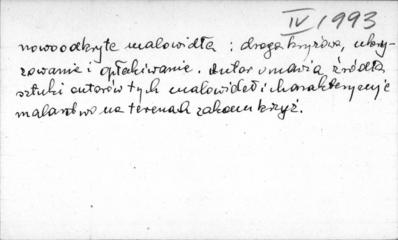 IV/1993
nowoodkryte malowidła : droga krzyżowa, ukrzy-
żowanie i opłakiwanie. Autor omawia źródła
sztuki autorów tych malowideł i charakteryzuje
malarstwo na terenach zakonu krzyż.